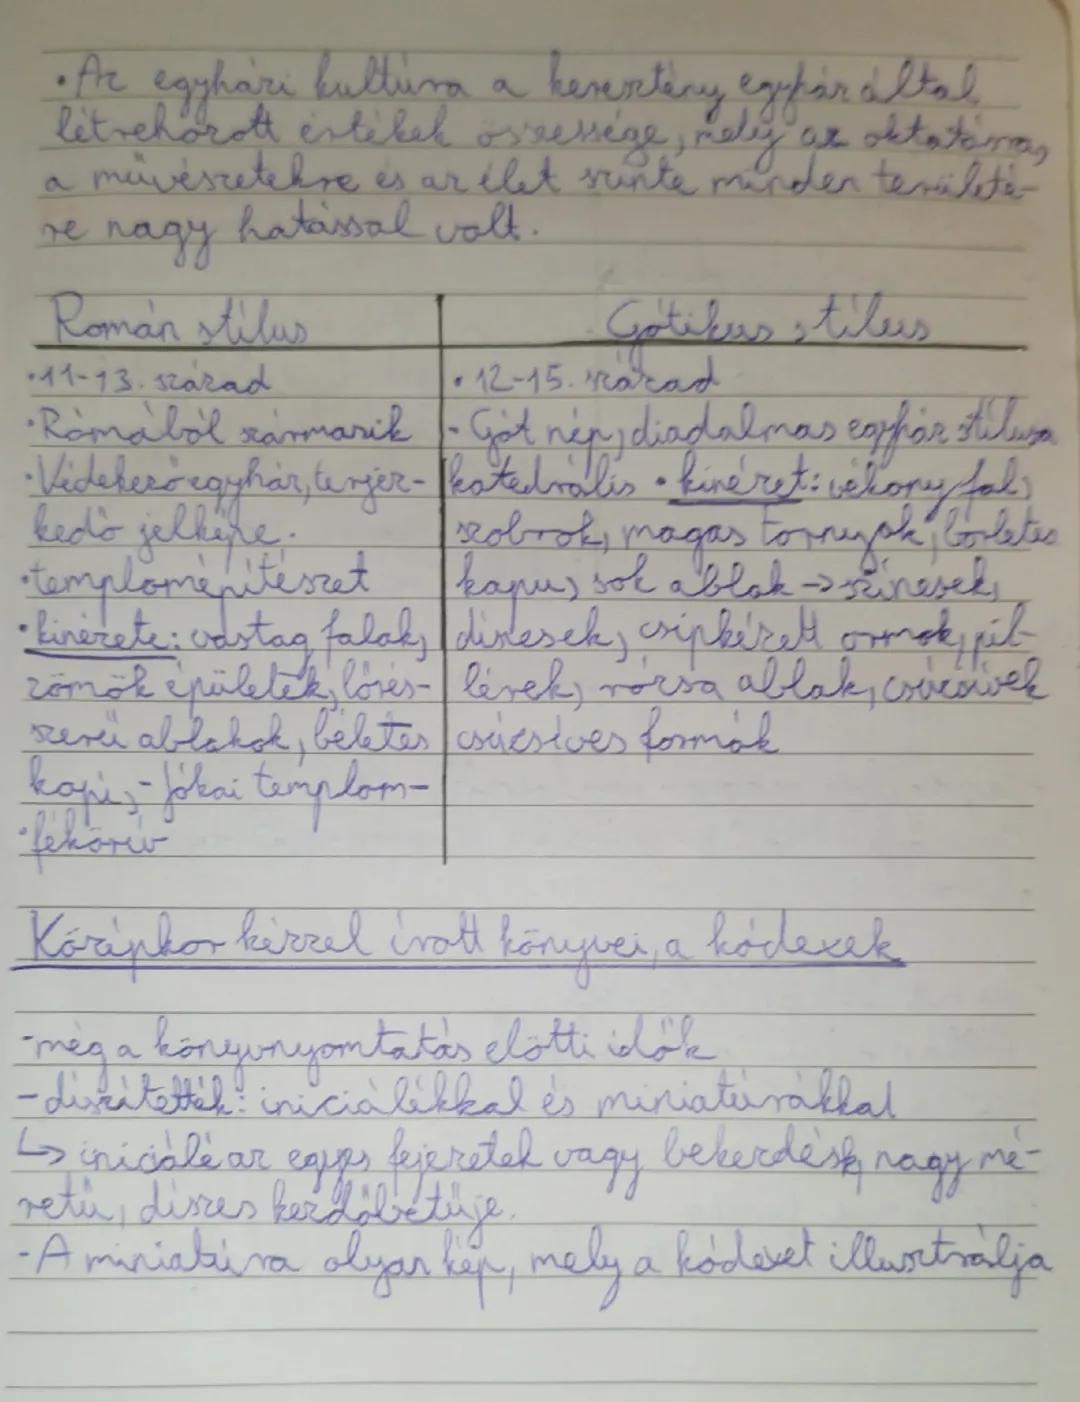 • Az egyházi kultúra a keresztény egyház által
létrehozott értékek összessége, mely az oktatásra,
a művészetekre és az élet szinte minden területé-
re nagy hatással volt.
Román stílus
• 11-13. század
• Rómából származik
• Védekező egyház, terjesz-
kedő jelképe.
• templomépítészet
• kinézete: vastag falak,
zömök épületek, lőrés-
szerű ablakok, béletes
kapu, - Jókai templom-
• félkörív
Gótikus stílus
• 12-15. század
- Gót nép, diadalmas egyház stílusa
katedrális • kinézet: vékony fal,
szobrok, magas tornyok, bérletes
kapu, sok ablak → színesek,
díszesek, csipkézett ormok, pil-
lérek, rózsa ablak, csúcsívek
csúcsíves formák
Középkor kézzel írott könyvei, a kódexek
- még a könyvnyomtatás előtti idők
- díszítették: iniciálékkal és miniatúrákkal
↳ iniciálé az egyes fejezetek vagy bekezdések, nagy mé-
retű, díszes kezdőbetűje.
- A miniatúra olyan kép, mely a kódexet illusztrálja